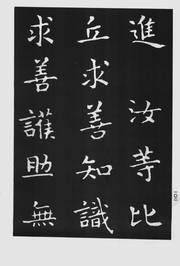 進汝等比
丘求善知識
求善護助無